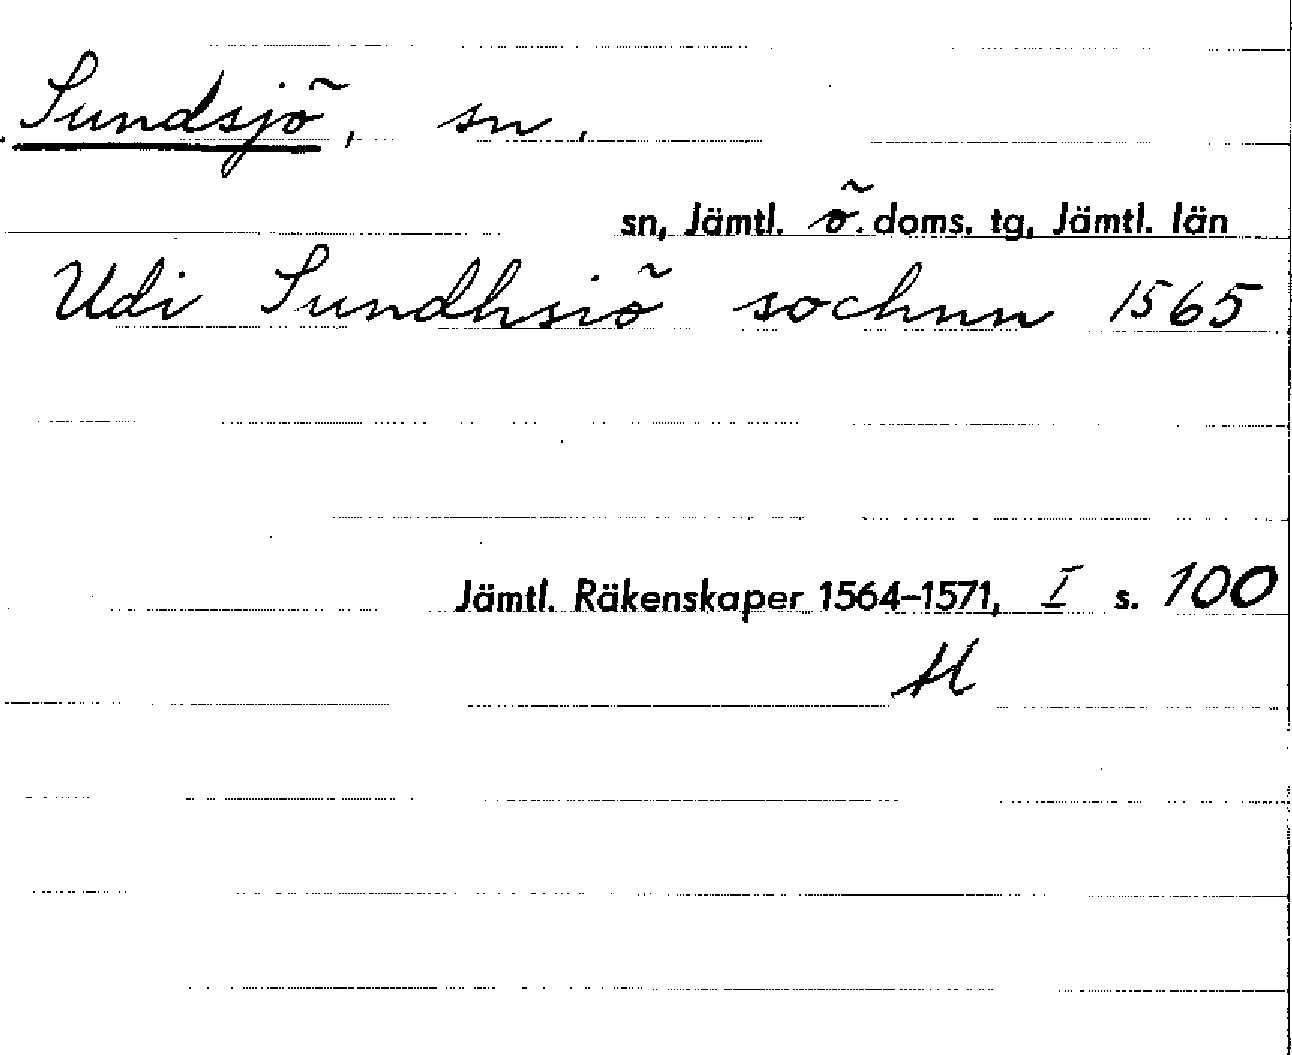 Sundsjö, sn.
sn, Jämtl. ö. doms. tg, Jämtl. län
Udi Sundhsiö sochnn 1565
Jämtl. Räkenskaper 1564–1571, I s. 100